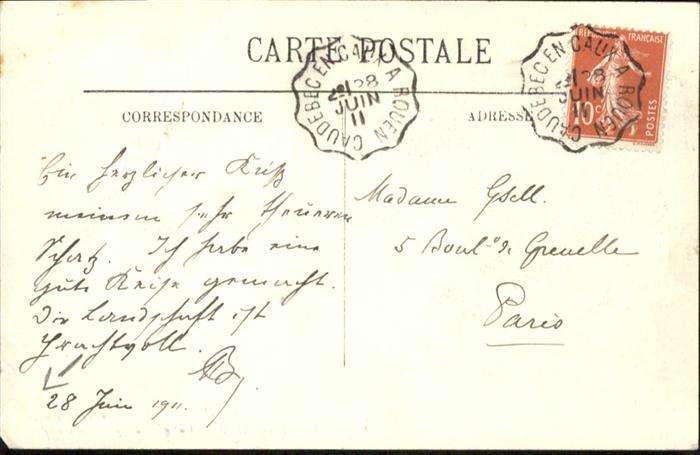 CARTE POSTALE
CORRESPONDANCE
ADRESSE
CAUDEBEC EN CAUX A ROUEN
28
JUIN
11
CAUDEBEC EN CAUX A ROUEN
28
JUIN
11
RÉPUBLIQUE FRANÇAISE
10 c
POSTES
Ein herzlicher Kuß
meinem sehr theueren
Schatz. Ich habe eine
gute Reise gemacht.
Die Landschaft ist
prachtvoll.
28 Juin 1911.
Madame Gsell.
5 Boul. de Grenelle
Paris